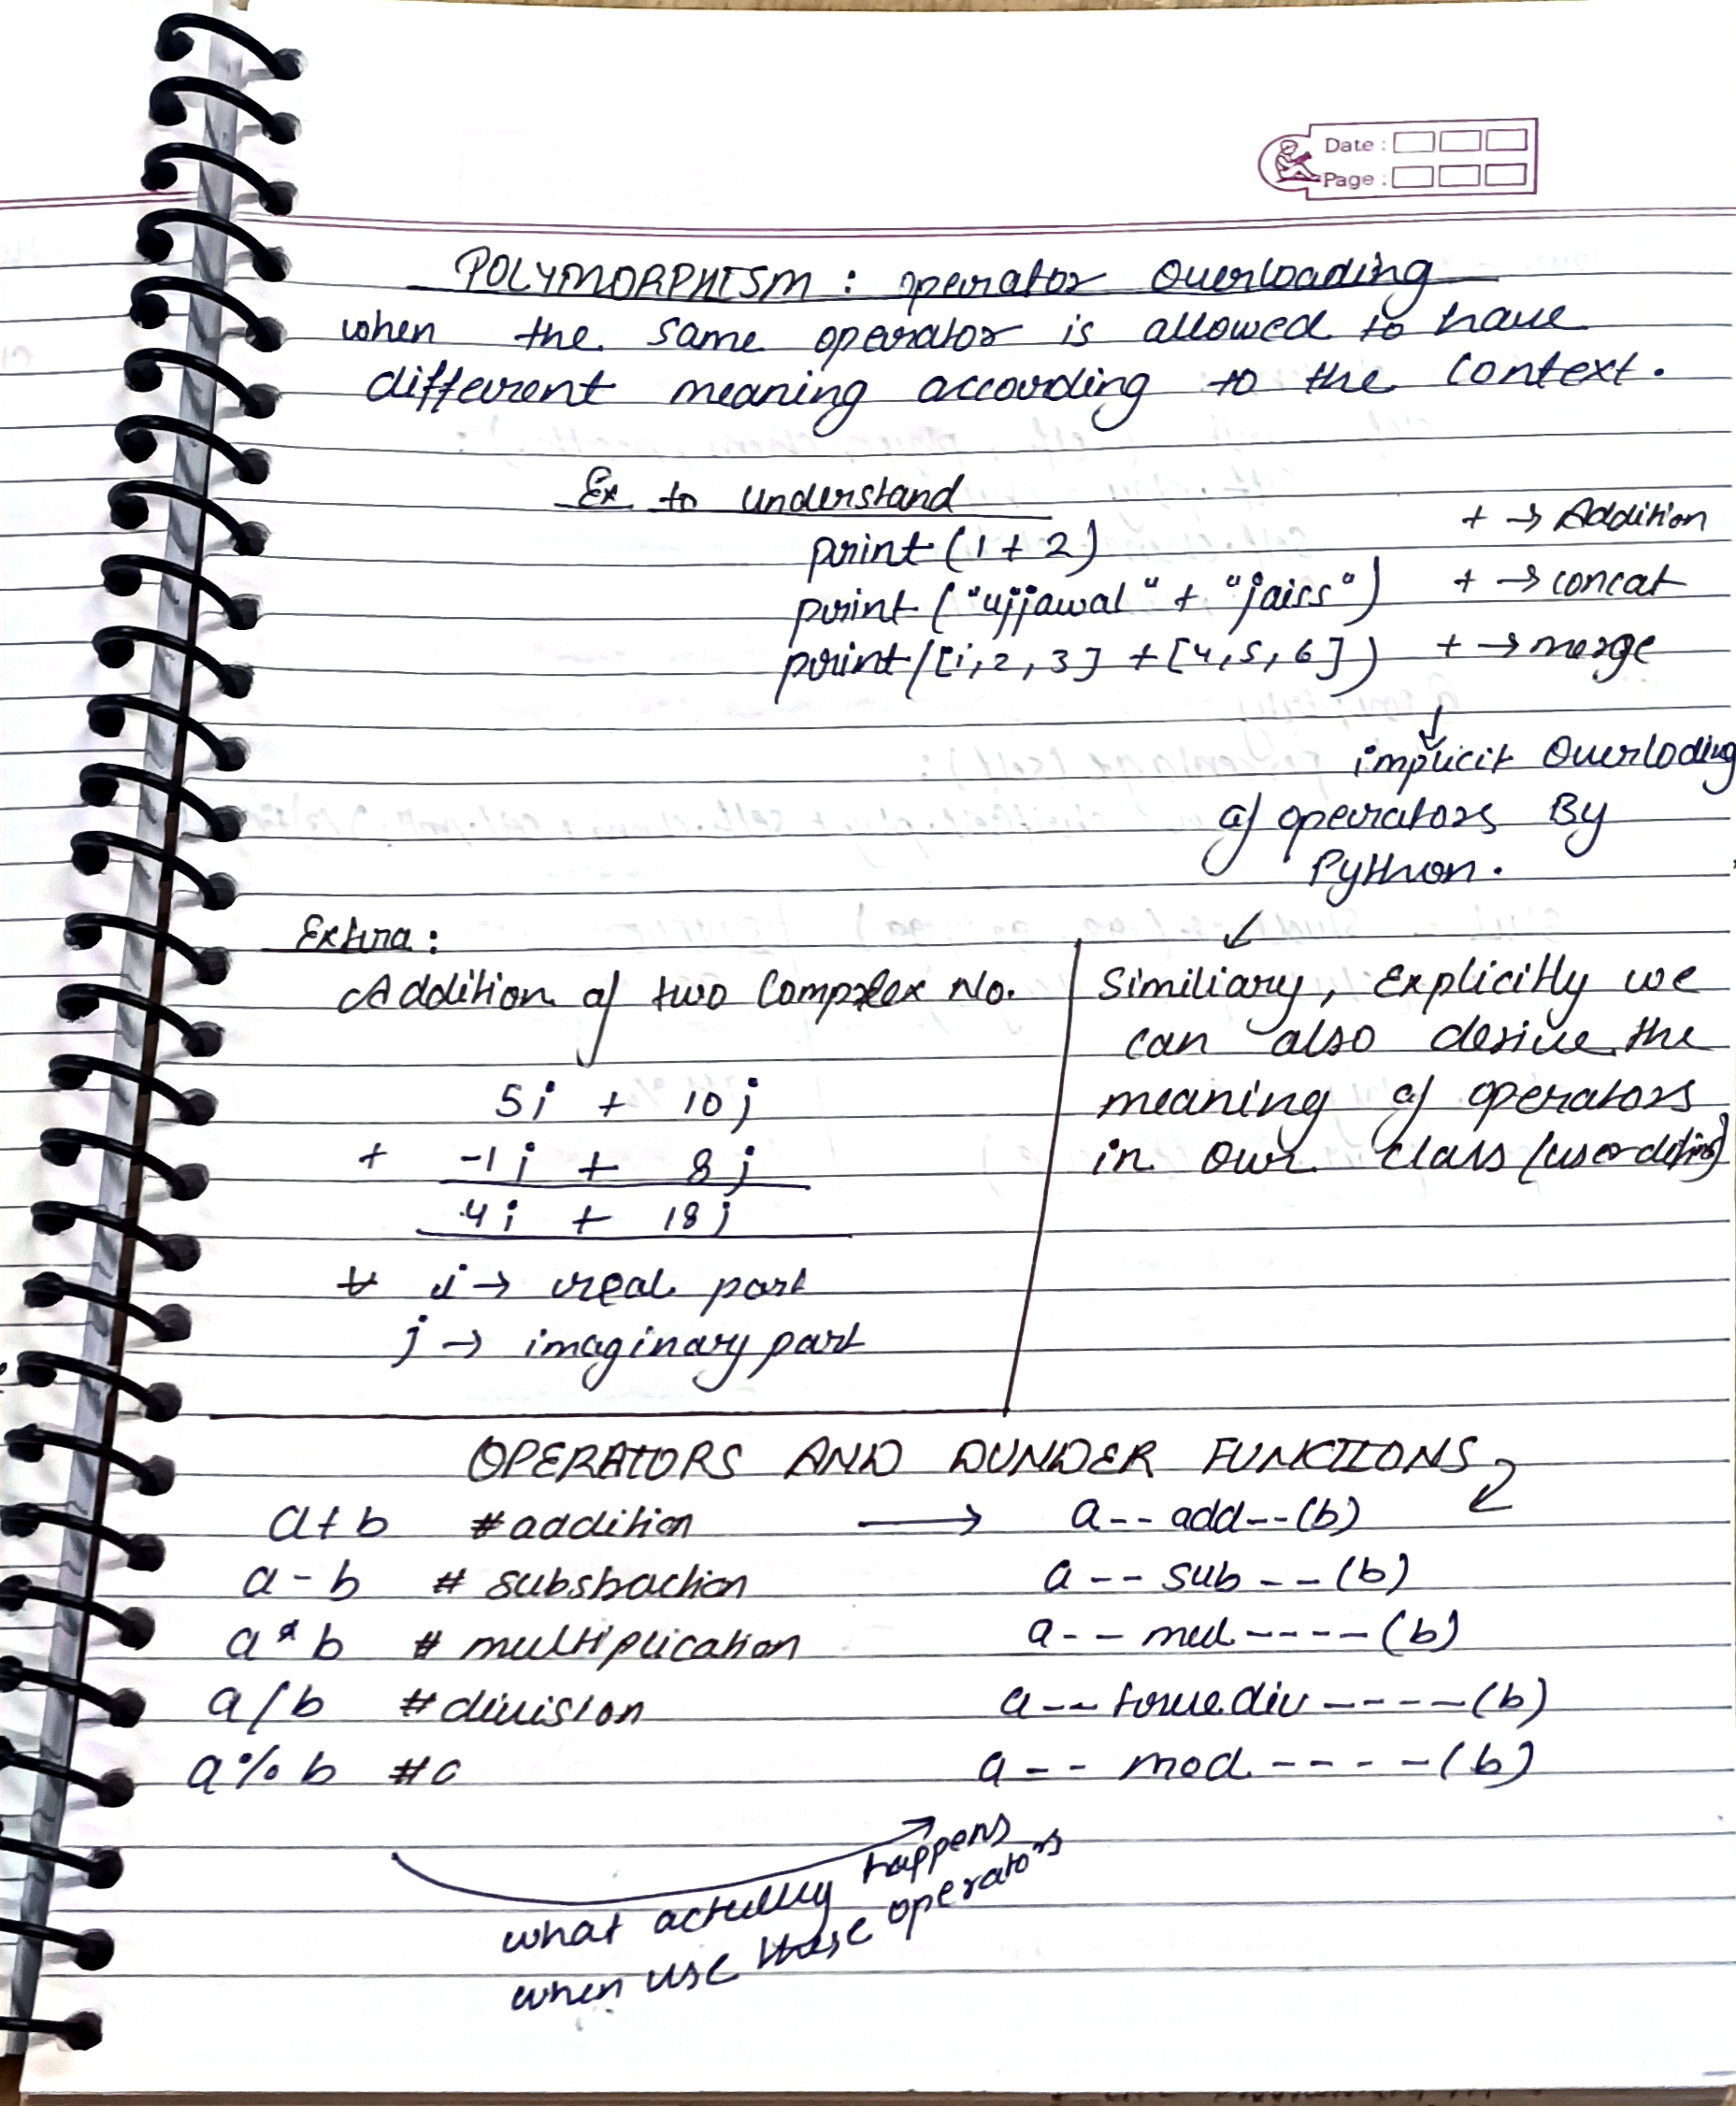 Date :
Page :
POLYMORPHISM : operator Overloading
when the same operator is allowed to have
different meaning according to the context.
Ex to understand
print (1 + 2) + → Addition
print ("ujjawal" + "jaiss") + → concat
print ([1, 2, 3] + [4, 5, 6]) + → merge
↓
implicit Overloding
of operators By
Python.
Extra :
Addition of two Complex No.
5i + 10j
+ -1i + 8j
4i + 18j
i → real part
j → imaginary part
Similiary, Explicitly we
can also derive the
meaning of operators
in own class
OPERATORS AND DUNDER FUNCTIONS
a+b #addition → a -- add -- (b)
a - b # substraction a -- sub -- (b)
a * b # multiplication a -- mul ---- (b)
a / b #division a -- truediv ---- (b)
a % b # a -- mod ---- (b)
what actullly happens
when use these operators